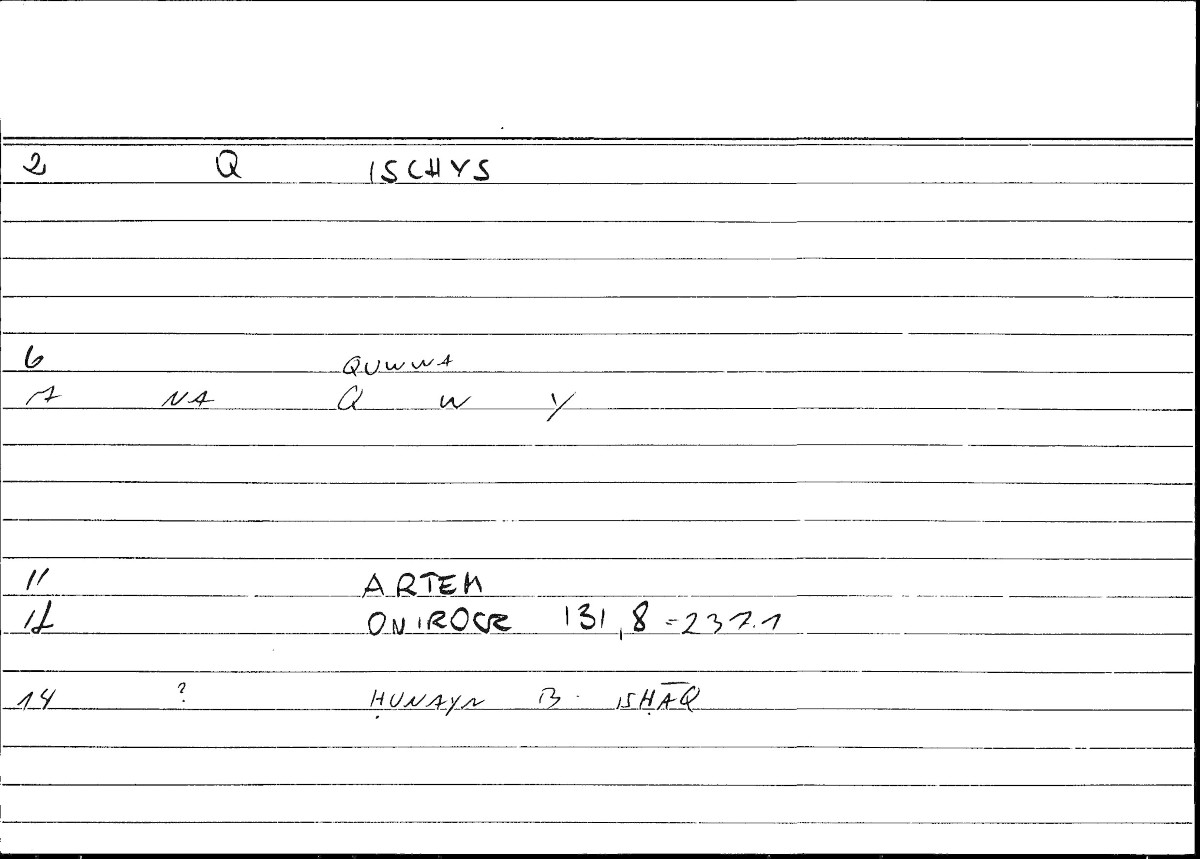 2 Q ISCHYS
6 QUWWA
7 NA Q W Y
11 ARTEM
12 ONIROCR 131,8 = 237.1
14 ? ḤUNAYN B. ISḤĀQ